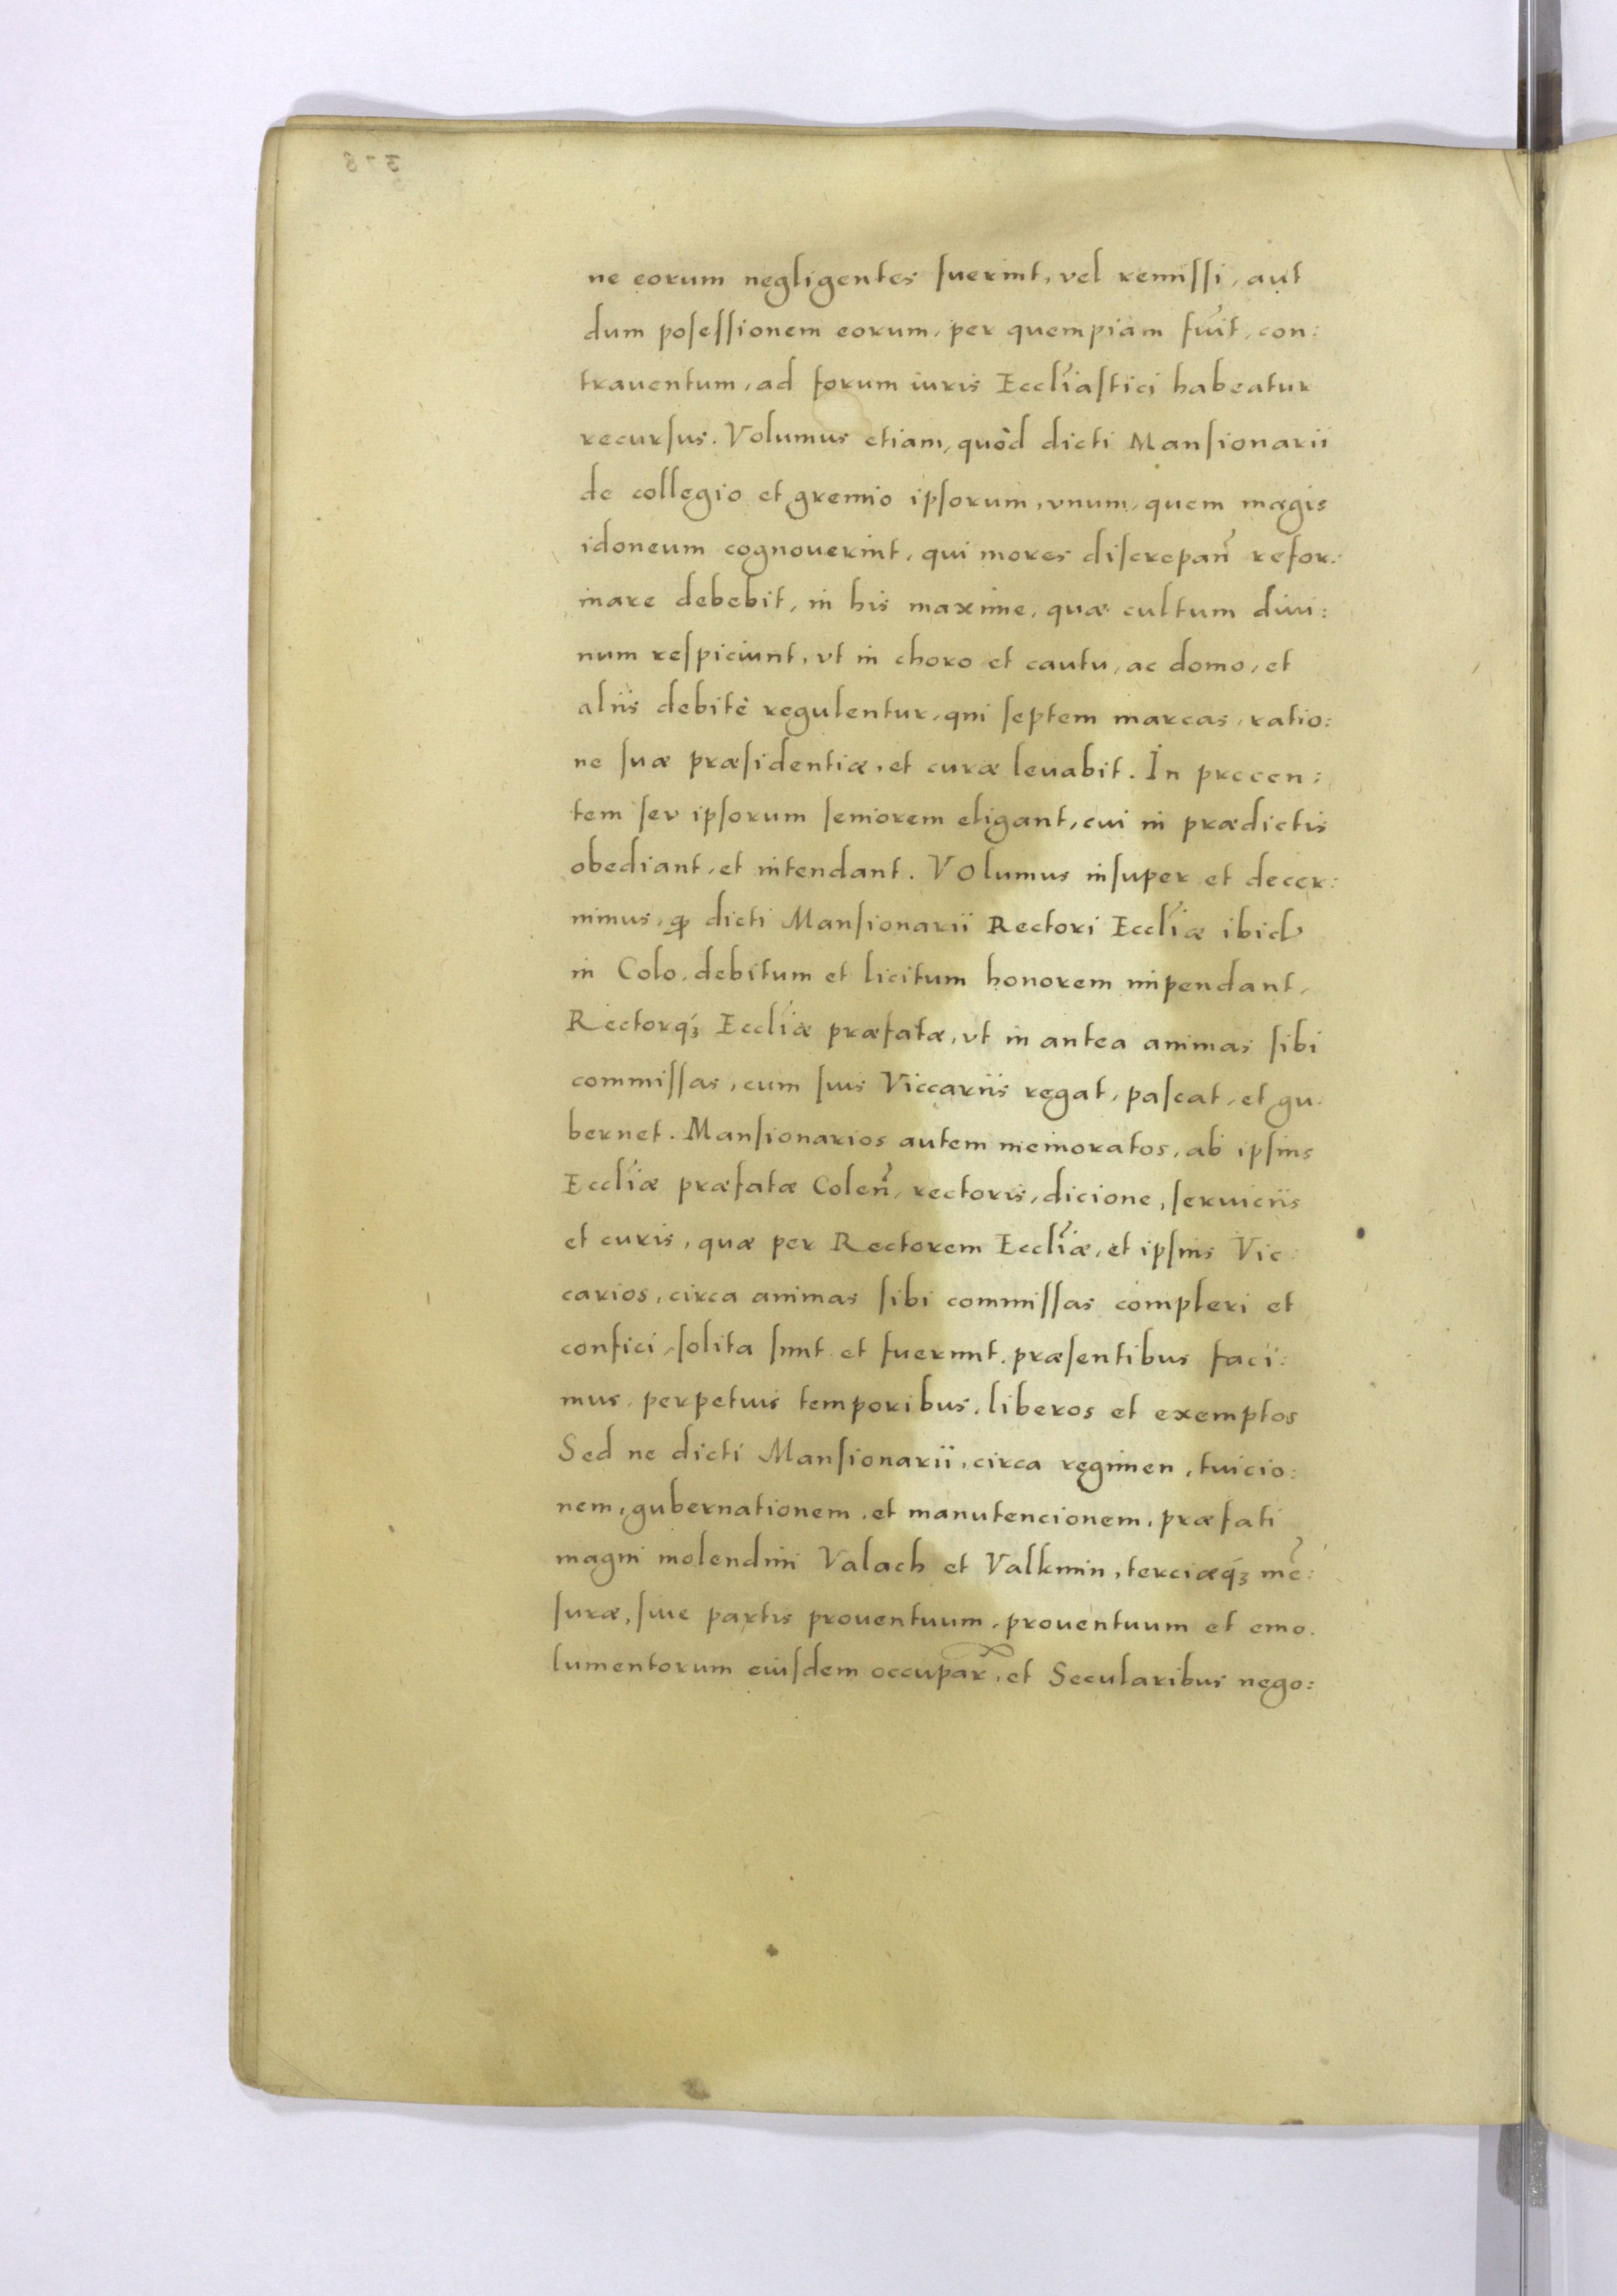 ne eorum negligentes fuerint, vel remiſſi, aut
dum poſeſſionem eorum, per quempiam fũit, con:
trauentum, ad forum iuris Eccl̃iaſtici habeatur
recurſus. Volumus etiam, quòd dicti Manſionarii
de collegio et gremio ipſorum, vnum, quem magis
idoneum cognouerint, qui mores diſcrepañ refor:
mare debebit, in his maxime, quæ cultum diui:
num reſpiciunt, vt in choro et cautu, ac domo, et
aliis debitè regulentur, qni ſeptem marcas, ratio:
ne ſuæ præſidentiæ, et curæ leuabit. In preccen:
tem ſev ipſorum ſeniorem eligant, cui in prædictis
obediant, et intendant. Volumus inſuper et decer:
nimus, ꝙ dicti Manſionarii Rectori Eccl̃iæ ibid
in Colo, debitum et licitum honorem impendant,
Rectorq́ꝫ Eccl̃iæ præfatæ, vt in antea animas ſibi
commiſſas, cum ſuis Viccariis regat, paſcat, et gu.
bernet. Manſionarios autem memoratos, ab ipſius
Eccl̃iæ præfatæ Coleñ, rectoris, dicione, ſeruiciis
et curis, quæ per Rectorem Eccl̃iæ, et ipſius Vic:
carios, circa animas ſibi commiſſas compleri et
confici, ſolita ſunt et fuerunt, præſentibus faci:
mus, perpetuis temporibus, liberos et exemptos
Sed ne dicti Manſionarii, circa regimen, tuicio:
nem, gubernationem, et manutencionem, præfati
magni molendini Valach et Valkmin, terciæq́ꝫ mẽ:
ſuræ, ſiue partis prouentuum, prouentuum et emo.
lumentorum eiuſdem occupar̃, et Secularibus nego: